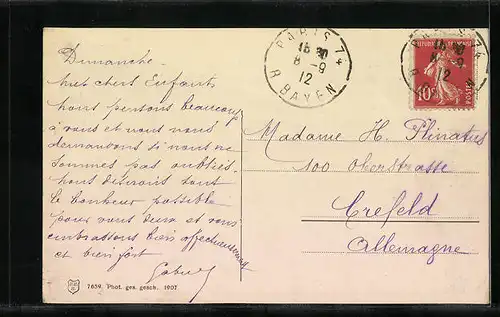 Dimanche
mes chers Enfants
nous pensons beaucoup
à vous et nous nous
demandons si nous ne
sommes pas oubliés.
nous désirons tout
le bonheur possible
pour vous deux et vous
embrassons bien affectueusement
et bien fort
PARIS 74
15 30
8-9
12
R. BAYEN
PARIS 74
8-9
12
10c
POSTES
Madame H.
100 Oberstrasse
Crefeld
Allemagne
7659. Phot. ges. gesch. 1907